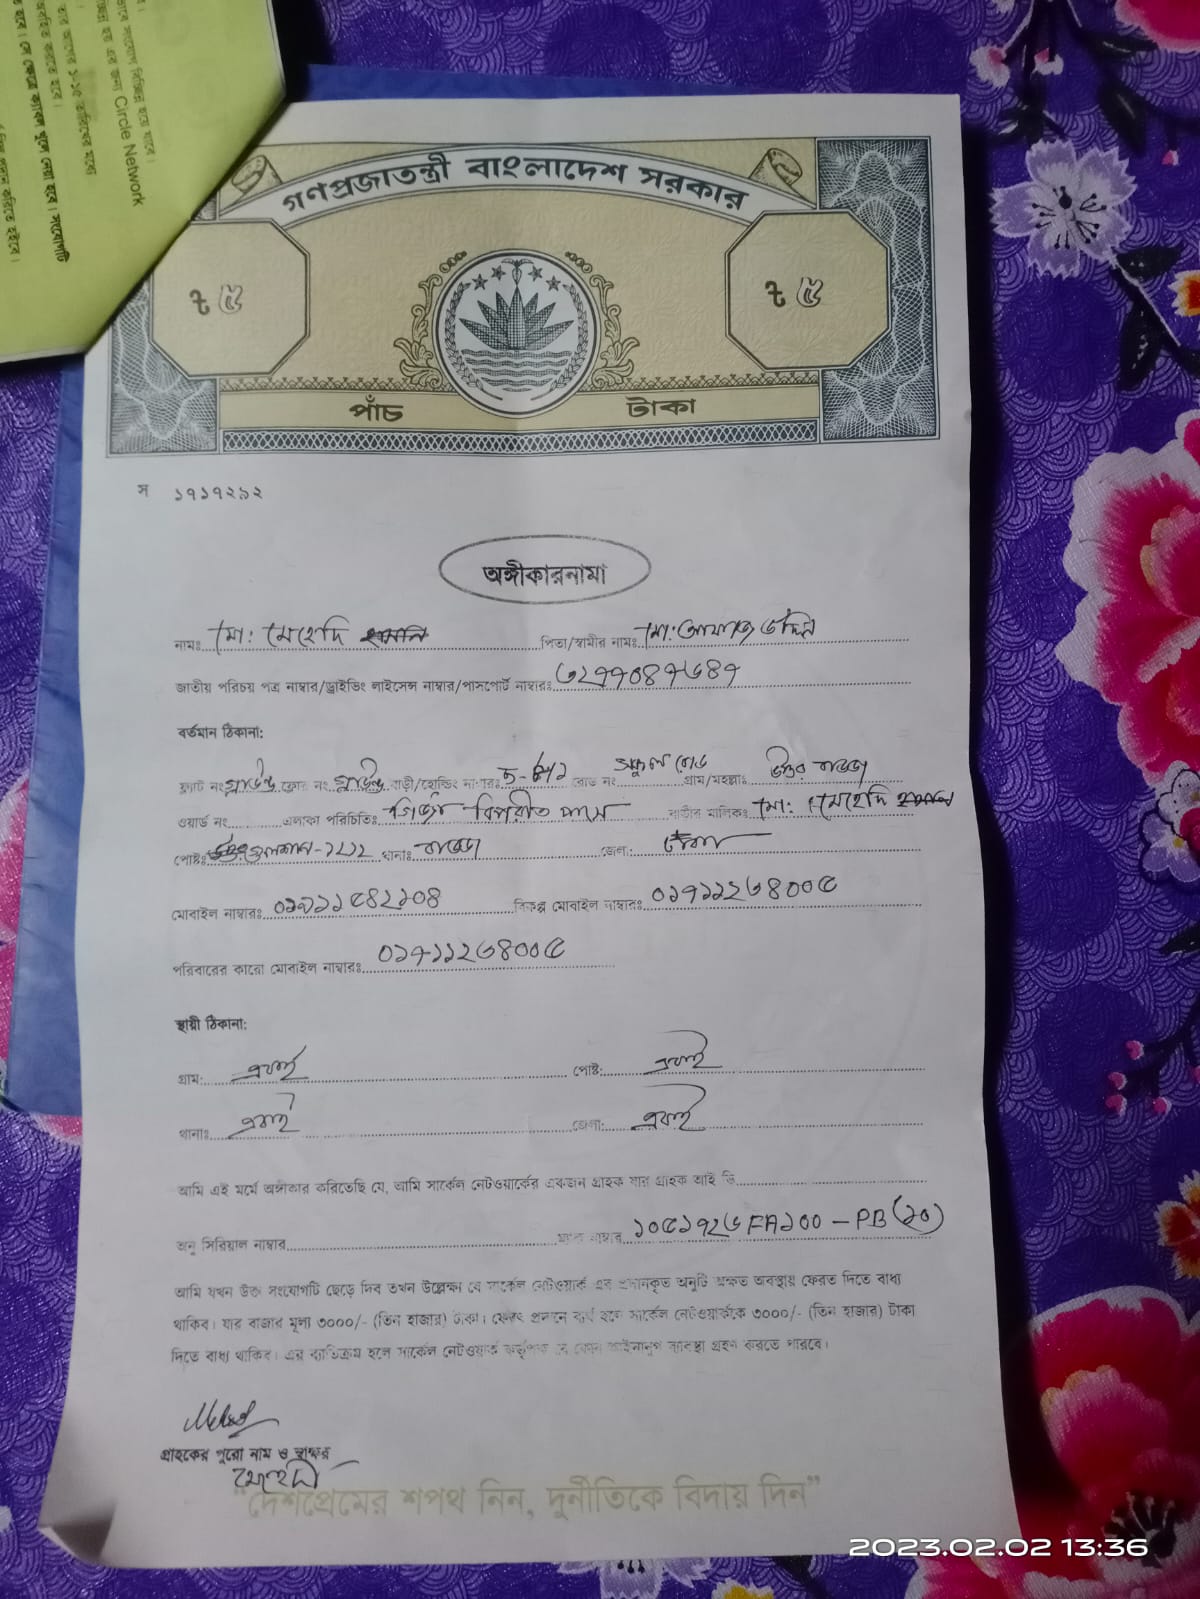 হবে।
ভাবে সংযোগ বিচ্ছিন্ন হয়ে যাবে।
এর জন্য Circle Network
১-১৫ তারিখের মধ্যে
অবহিত করতে হবে।
হবে। সে ক্ষেত্রে ক্যাবল খুলে নেয়া হবে। সংযোগটি
প্রদান করিতে হইবে।
গণপ্রজাতন্ত্রী বাংলাদেশ সরকার
৳ ৫
৳ ৫
পাঁচ টাকা
স ১৭১৭২৯২
অঙ্গীকারনামা
নামঃ মো: মেহেদি পিতা/স্বামীর নামঃ মো: উদ্দিন
জাতীয় পরিচয় পত্র নাম্বার/ড্রাইভিং লাইসেন্স নাম্বার/পাসপোর্ট নাম্বারঃ ৩২৭৭০৪৭৬৪৭
বর্তমান ঠিকানা:
ফ্লাট নং গ্রাউন্ড ফ্লোর নং গ্রাউন্ড বাড়ী/হোল্ডিং নাম্বারঃ রোড নং স্কুল রোড গ্রাম/মহল্লাঃ উত্তর বাড্ডা
ওয়ার্ড নং এলাকা পরিচিতিঃ বিপরীত পাশে বাড়ীর মালিকঃ মো: মেহেদি
পোষ্টঃ গুলশান-১২১২ থানাঃ বাড্ডা জেলা: ঢাকা
মোবাইল নাম্বারঃ ০১৯১১৫৪২১০৪ বিকল্প মোবাইল নাম্বারঃ ০১৭১১২৬৪০০৫
পরিবারের কারো মোবাইল নাম্বারঃ ০১৭১১২৬৪০০৫
স্থায়ী ঠিকানা:
গ্রাম: একই পোষ্ট: একই
থানাঃ একই জেলা: একই
আমি এই মর্মে অঙ্গীকার করিতেছি যে, আমি সার্কেল নেটওয়ার্কের একজন গ্রাহক যার গ্রাহক আই ডি
অনু সিরিয়াল নাম্বার নাম্বার ১০৫১৭২৬FA১০০ - PB (২০)
আমি যখন উক্ত সংযোগটি ছেড়ে দিব তখন উল্লেক্ষ্য যে সার্কেল নেটওয়ার্ক এর প্রদানকৃত অনুটি অক্ষত অবস্থায় ফেরত দিতে বাধ্য
থাকিব। যার বাজার মূল্য ৩০০০/- (তিন হাজার) টাকা। ফেরৎ প্রদানে ব্যর্থ হলে সার্কেল নেটওয়ার্ককে ৩০০০/- (তিন হাজার) টাকা
দিতে বাধ্য থাকিব। এর ব্যতিক্রম হলে সার্কেল নেটওয়ার্ক কর্তৃপক্ষ যে কোন আইনানুগ ব্যবস্থা গ্রহন করতে পারবে।
গ্রাহকের পুরো নাম ও স্বাক্ষর
মেহেদী
“দেশপ্রেমের শপথ নিন, দুর্নীতিকে বিদায় দিন”
2023.02.02 13:36